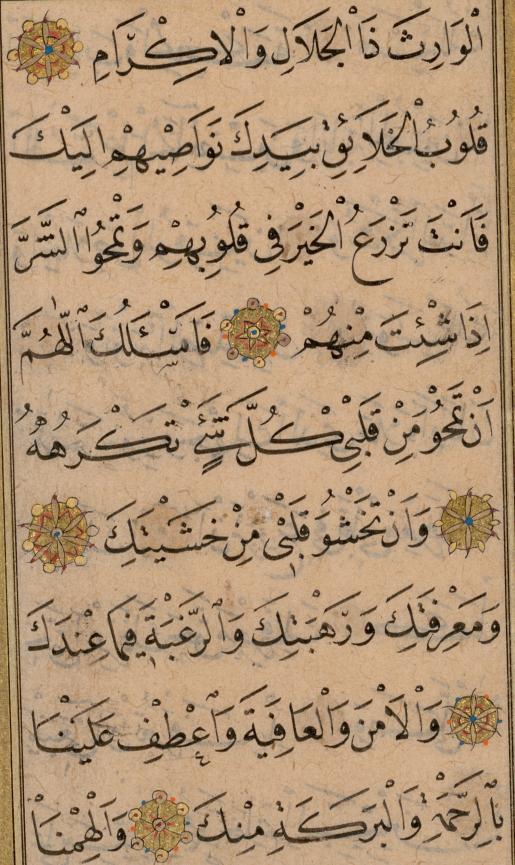 الْوَارِثَ ذَا الْجَلَالِ وَالْاِكْرَامِ
قُلُوبُ الْخَلَائِقِ بِيَدِكَ نَوَاصِيهِمْ اِلَيْكَ
فَاَنْتَ تَزْرَعُ الْخَيْرَ فِي قُلُوبِهِمْ وَتَمْحُوا الشَّرَّ
اِذَا شِئْتَ مِنْهُمْ فَاَسْئَلُكَ اَللّٰهُمَّ
اَنْ تَمْحُوَ مِنْ قَلْبِي كُلَّ شَيْءٍ تَكْرَهُهُ
وَاَنْ تَحْشُوَ قَلْبِي مِنْ خَشْيَتِكَ
وَمَعْرِفَتِكَ وَرَهْبَتِكَ وَالرَّغْبَةَ فِيمَا عِنْدَكَ
وَالْاَمْنَ وَالْعَافِيَةَ وَاعْطِفْ عَلَيْنَا
بِالرَّحْمَةِ وَالْبَرَكَةِ مِنْكَ وَاَلْهِمْنَا